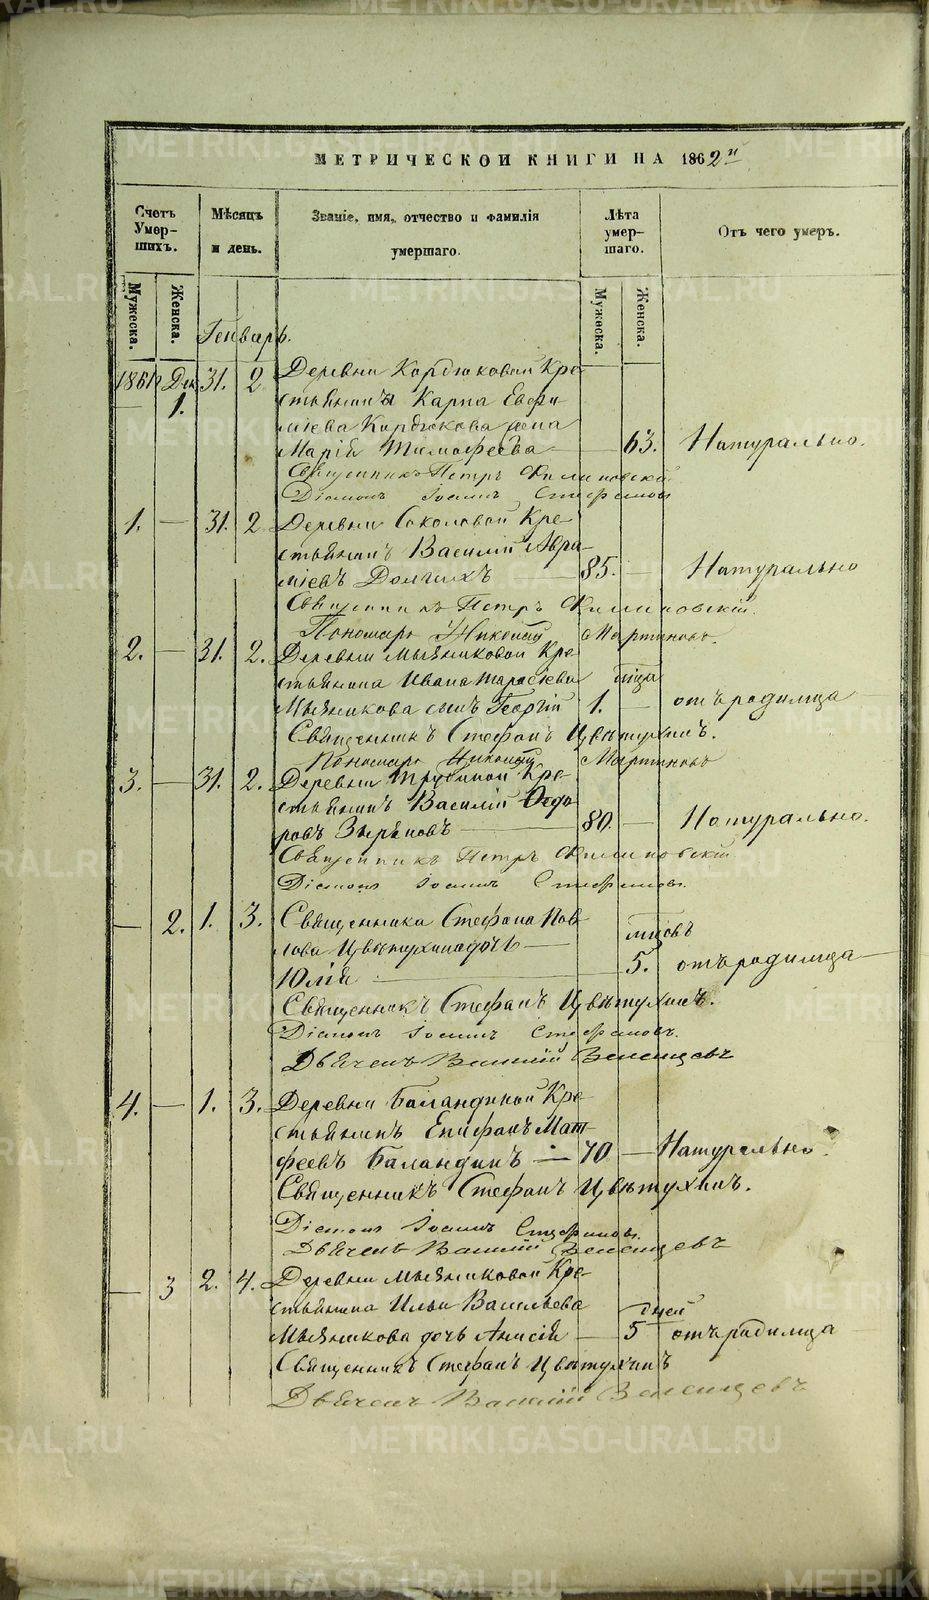 МЕТРИЧЕСКОЙ КНИГИ НА 1862й
Счетъ Умер- шихъ.
Мѣсяцъ и день.
Званіе, имя, отчество и фамилія умершаго.
Лѣта умер- шаго.
Отъ чего умеръ.
Мужеска.
Женска.
Мужеска.
Женска.
Генварь.
1861 Дек 31. 2 Деревни Кордюковой Кре-
1. стьянина Карпа Евфи-
міева Кордюкова жена
Марія Тимофеева — 63. Натурально.
Священникъ Петръ Филиповскій
Діаконъ Іоаннъ Стефановъ
1. — 31. 2 Деревни Соколовой Кре-
стьянинъ Василій Авра-
міевъ Долгихъ — 85. — Натурально
Священникъ Петръ Филиповскій.
Пономарь Николай Мартиновъ.
2. — 31. 2. Деревни Мызниковой Кре-
стьянина Ивана Тарасіева
Мызникова сынъ Георгій 1. — отъ родимца
Священникъ Стефанъ Цвѣтухинъ.
Пономарь Николай Мартиновъ
3. — 31. 2. Деревни Трубиной Кре-
стьянинъ Василій Федо-
ровъ Зыряновъ — 80. — Натурально.
Священникъ Петръ Филиповскій
Діаконъ Іоаннъ Стефановъ.
— 2. 1. 3. Священника Стефана Пав-
лова Цвѣтухина дочь — мцовъ
Юлія — 5. отъ родимца —
Священникъ Стефанъ Цвѣтухинъ.
Діаконъ Іоаннъ Стефановъ.
Дьячекъ Василій Зеленцевъ
4. — 1. 3. Деревни Баландиной Кре-
стьянинъ Епифанъ Мат-
феевъ Баландинъ — 70 — Натурально.
Священникъ Стефанъ Цвѣтухинъ.
Діаконъ Іоаннъ Стефановъ.
Дьячекъ Василій Зеленцевъ
— 3 2. 4. Деревни Мызниковой Кре-
стьянина Ильи Васильева дней
Мызникова дочь Анисія — 5 отъ родимца
Священникъ Стефанъ Цвѣтухинъ
Дьячекъ Василій Зеленцевъ
METRIKI.GASO-URAL.RU